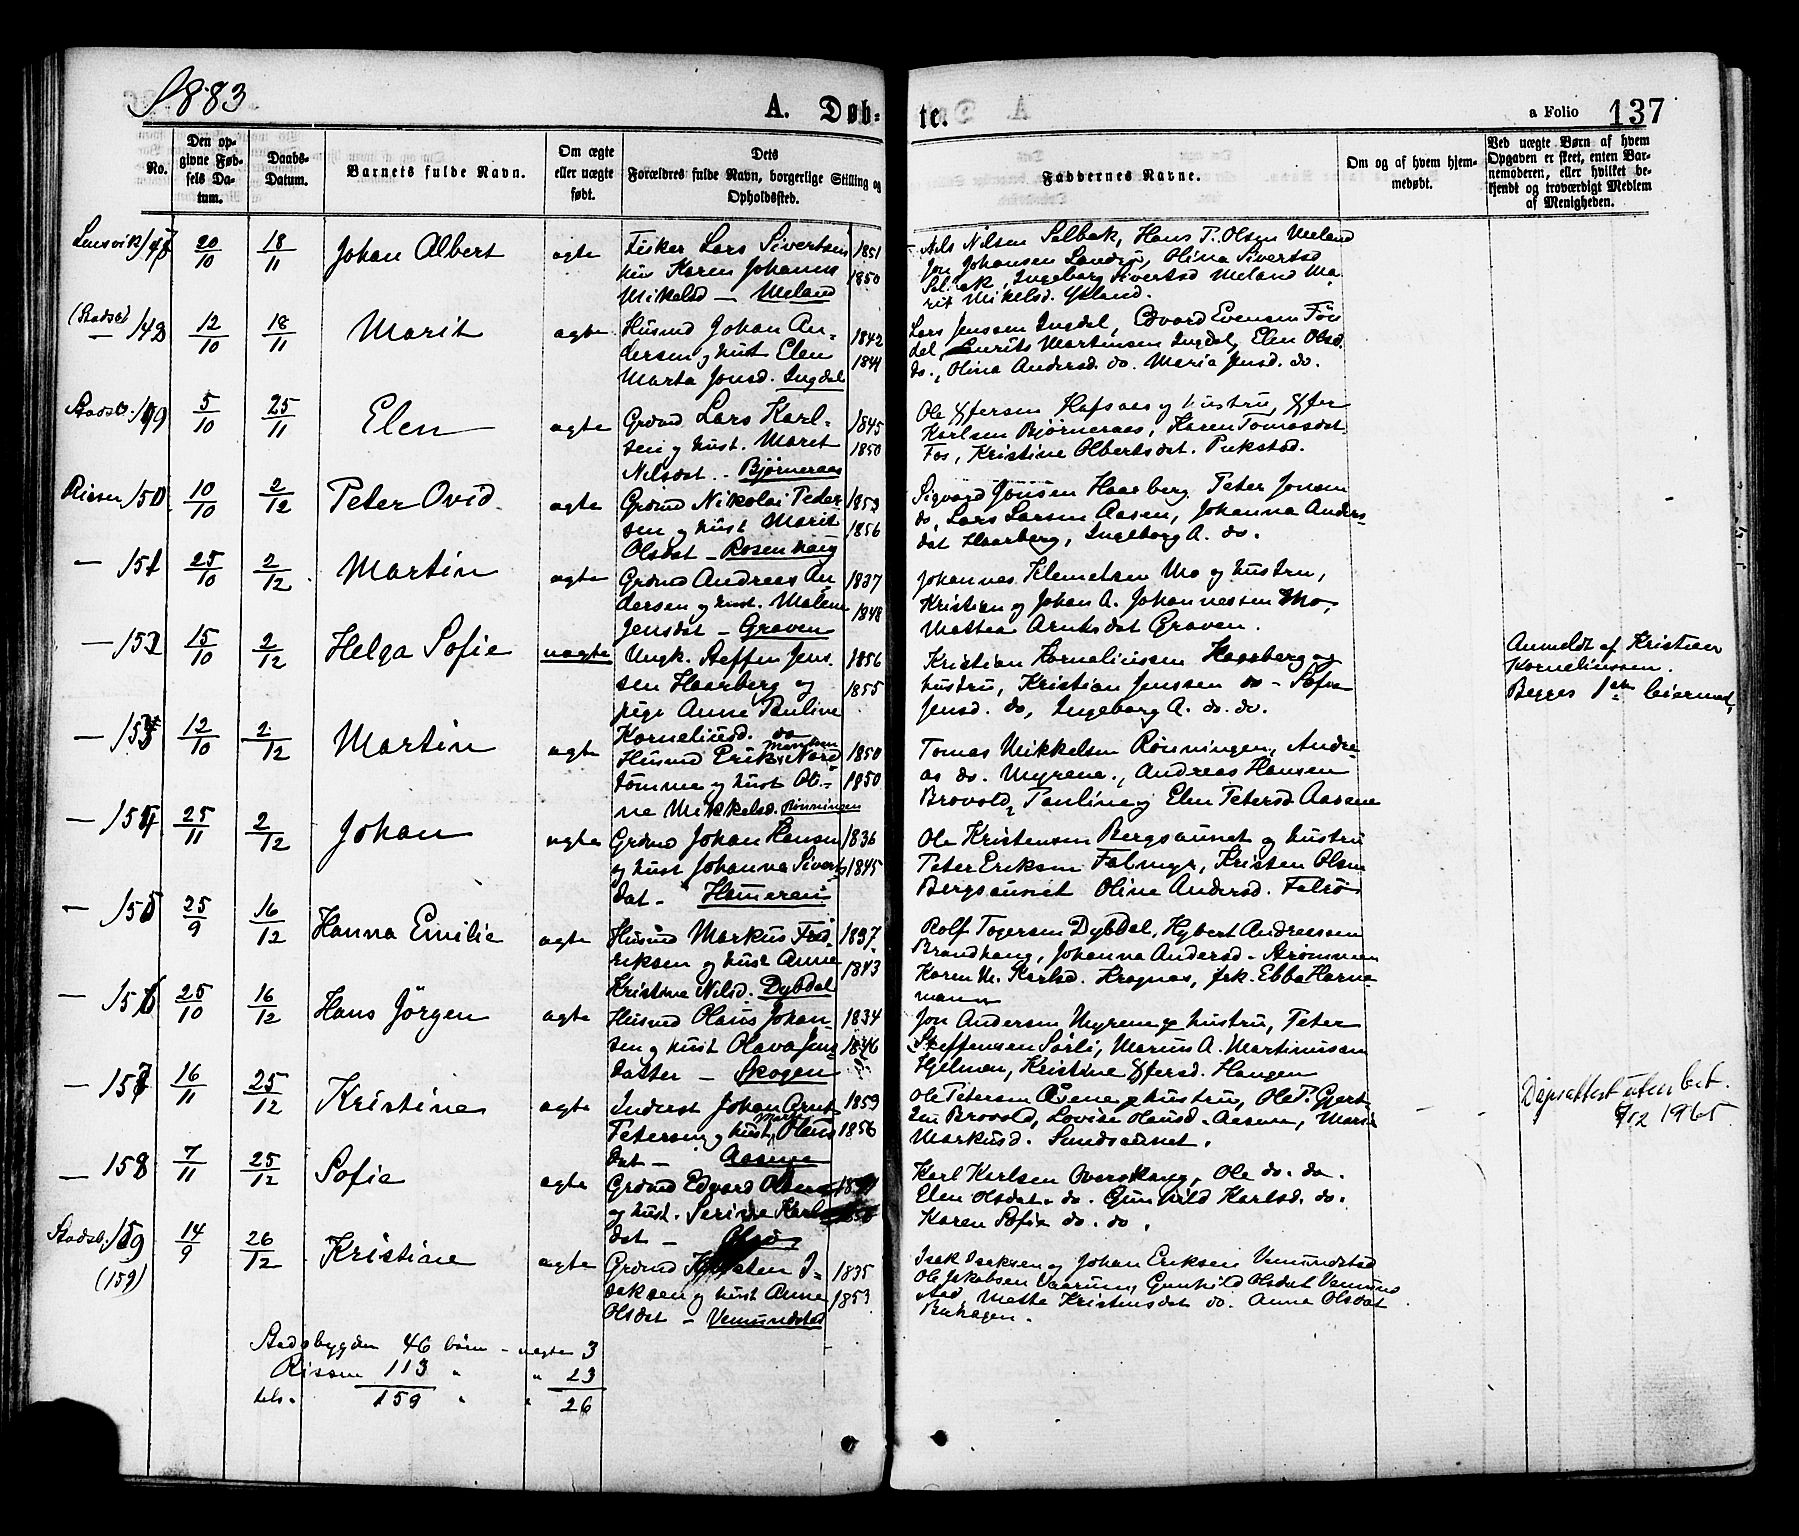 1883
A. Døb-
te.
a Folio 137
No.
Den op-
givne Fød-
sels Da-
tum.
Daabs-
Datum.
Barnets fulde Navn.
Om ægte
eller uægte
født.
Dets
Forældres fulde Navn, borgerlige Stilling og
Opholdssted.
Faddernes Navne.
Om og af hvem hjem-
medøbt.
Ved uægte Børn af hvem
Opgaven er skeet, enten Bar-
nemoderen, eller hvilket be-
kjendt og troværdigt Medlem
af Menigheden.
Lensvik 147 20/10 18/11 Johan Albert ægte Fisker Lars Sivertsen 1851
Karen Johanna 1850
Mikelsd — Meland
Nils Nilsen Selbek, Hans P. Olsen Meland
Jon Johansen Landrø, Olina Sivertsd
Selbek, Ingeborg Sivertsd Meland Ma-
rit Mikelsd.
Stadsb. 148 12/10 18/11 Marit ægte Husmd Johan An- 1842
dersen og hust Elen 1844
Marta Jonsd. Ingdal
Lars Jenssen Ingdal, Edvard Evensen
Laurits Martinsen Ingdal, Elen Olsd.
do., Olina Andersd. do. Maria Jensd. do.
Stadsb. 149 5/10 25/11 Elen ægte Grdmd Lars Karl- 1845
sen og hust. Marit 1850
Nilsdat. Bjørneraas
Ole Hafsaas og hustru,
Karlsen Bjørneraas, Karen Tomasdat.
Fos, Kristine Olbertsdat.
Rissen 150 10/10 2/12 Peter Ovid. ægte Grdmd Nikolai Peder- 1853
sen og hust Marit 1856
Olsdat — Rosenhaug
Sigvard Jonsen Haarberg Peter Jonsen
do, Lars Larsen Aasen, Johanna Anders-
dat Haarberg, Ingeborg A. do.
— 151 25/10 2/12 Martin ægte Grdmd Andreas An- 1837
dersen og hust. Malene 1848
Jensdat — Graven
Johannes Klemetsen Mo og hustru,
Kristian og Johan A. Johannessen Mo,
Mattea Arntsdat Graven.
— 152 15/10 2/12 Helga Sofie uægte Ungk. Steffen Jens- 1856
sen Haarberg og 1855
pige Anne Pauline
Korneliusd. do
Kristian Korneliussen Haarberg og
hustru, Kristian Jenssen do — Sofie
Jensd. do, Ingeborg A. do. do.
Anmeldt af Kristian
Korneliussen.
Begges 1ste leiermaal,
— 153 12/10 2/12 Martin ægte Husmd Erik Nord- 1850
tømme og hust Oli- 1850
ne Mikkelsd. Rønningen
Tomas Mikkelsen Rønningen, Andre-
as do. Myrene., Andreas Hansen
Brovold, Pauline og Elen Petersd Aasene
— 154 25/11 2/12 Johan ægte Grdmd Johan Hansen 1836
og hust Johanna Siverts- 1845
dat —
Ole Kristensen Bergsaunet og hustru
Peter Eriksen Falmyr, Kristen Olsen
Bergsaunet Oline Andersd.
— 155 25/9 16/12 Hanna Emilie ægte Husmd Markus Fred- 1837.
riksen og hust Anne 1843
Kristine Nilsd. Dybdal
Rolf Togersen Dybdal, Hybert Andreassen
Brandhaug, Johanna Andersd. Strømmen
Karen M. Karlsd. Kragnæs, frk. Ebba Horne-
mann
— 156 25/10 16/12 Hans Jörgen ægte Husmd Olaus Johan- 1834
sen og hust Olava Jens- 1846
datter — Skogen
Jon Andersen Myrene og hustru, Peter
Steffensen Sørli, Marius A. Martinussen
Hjelmen, Kristine Haugen
— 157 16/11 25/12 Kristine ægte Inderst Johan Arnt 1859
Petersen og hust Marta Olaus- 1856
dat — Aasene
Ole Petersen Øvene og hustru, Ole P. Gjert-
sen Brovold, Lovise Olausd. Aasene, Marie
Markusd. Sundsaunet.
Daapsattest uten bet.
9/12 1965
— 158 7/11 25/12 Sofie ægte Grdmd Edvard Olsen
og hust. Serine Karls-
dat —
Karl Karlsen Overskaug, Ole do. do.
Elen Olsdat. do. Gunhild Karlsd. do.
Karen Sofie do. do.
Stadsb. 159 14/9 26/12 Kristiane ægte Grdmd Karsten I- 1835
saksen og hust Anne 1853.
Olsdat — Vemundstad
(159)
Isak Isaksen og Johan Eriksen Vemundstad
Ole Jakobsen Vaarum, Gunhild Olsdat Vemund-
stad, Mette Kristensdat do. Anna Olsdat
Bakagen.
Stadsbygden 46 børn — uægte 3
Rissen 113 " " 23
tils. 159 " " 26